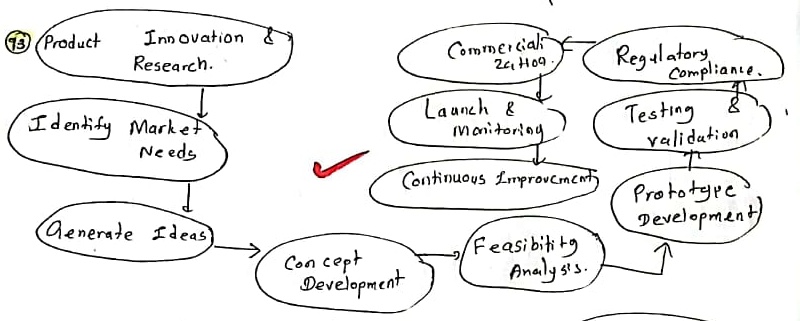 93
Product Innovation &
Research.
Identify Market
Needs
Generate Ideas
Concept
Development
Feasibility
Analysis.
Prototype
Development
Testing &
validation
Regulatory
Compliance.
Commerciali
zation
Launch &
Monitoring
Continuous Improvement